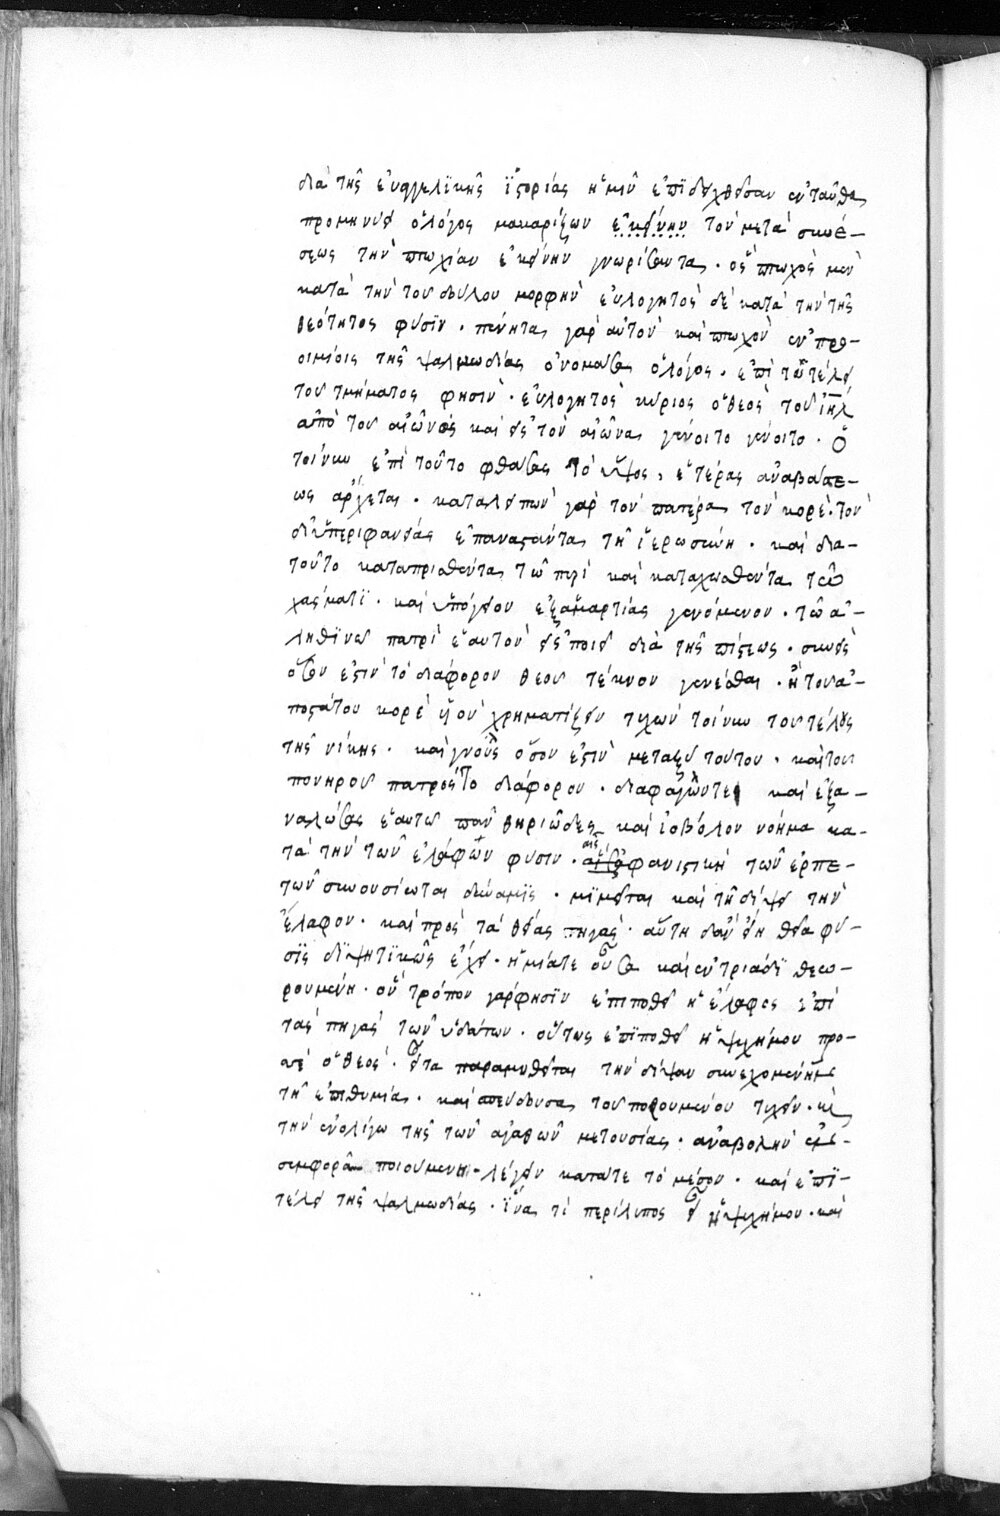 διὰ τῆς εὐαγγελϊκῆς ϊστορίας ἡμῖν ἐπϊδειχθεῖσαν ἐνταῦθα
προμηνύει ὁ λόγος μακαρίζων ἐκείνην τὸν μετὰ συνέ-
σεως τὴν πτωχίαν ἐκείνην γνωρίσαντα · ὃς πτωχὸς μὲν
κατὰ τὴν τοῦ δούλου μορφὴν εὐλογητὸς δὲ κατὰ τὴν τῆς
θεότητος φύσϊν · πένητα γὰρ αὐτὸν καὶ πτωχὸν ἐν προ-
οιμίοις τῆς ψαλμωδίας ὀνομάσας ὁ λόγος · ἐπὶ τῶ τέλει
τοῦ τμήματος φησὶν · εὐλογητὸς κύριος ὁ θεὸς τοῦ ἰηλ
ἀπὸ τοῦ αἰῶνος καὶ εἰς τὸν αἰῶνα γένοιτο γένοιτο · Ὁ
τοίνυν ἐπὶ τοῦτο φθάσας τὸ ὕψος, ἑτέρας ἀναβάσε-
ως ἄρχεται · καταλειπὼν γὰρ τὸν πατέρα τὸν κορὲ · τὸν
δι' ὑπεριφανείας ἐπαναστάντα τῆ ἱερωσύνη · καὶ δια-
τοῦτο καταπρισθέντα τῶ πυρὶ καὶ καταχωσθέντα τῶ
χάσματϊ · καὶ ὑπόγειον ἐξαμαρτίας γενόμενον · τῶ ἀ-
ληθϊνῶ πατρὶ ἑαυτὸν εἰσποιεῖ διὰ τῆς πίστεως · συνεὶς
ὅσον ἐστὶν τὸ διάφορον θεοῦ τέκνον γενέσθαι · ἢ τοῦ ἀ-
ποστάτου κορὲ υἱὸν χρηματίζειν τυχὼν τοίνυν τοῦ τέλους
τῆς νίκης · καὶ γνοὺς ὅσον ἐστὶν μεταξὺ τούτου · καὶ τοῦ
πονηροῦ πατρὸς τὸ διάφορον · διαφαγὼν τε καὶ ἐξα-
ναλώσας ἑαυτῶ πᾶν θηριῶδες καὶ ἰοβόλον νόημα κα-
τὰ τὴν τῶν ἐλάφων φύσιν · αἷς ἀφανιστικὴ τῶν ἑρπε-
τῶν συνουσίωται δύναμϊς · μϊμεῖται καὶ τῆ δίψει τὴν
ἔλαφον · καὶ πρὸς τὰς θείας πηγὰς · αὕτη δ' ἂν εἴη θεία φύ-
σϊς δϊψητϊκῶς ἔχει · ἡ μία τε οὖσα καὶ ἐν τριάδϊ θεω-
ρουμένη · ὃν τρόπον γάρ φησϊν ἐπιποθεῖ ἡ ἔλαφος ἐπὶ
τὰς πηγὰς τῶν ὑδάτων · οὕτως ἐπϊποθεῖ ἡ ψυχή μου προ-
σὲ ὁ θεὸς · εἶτα παραμυθεῖται τὴν δίψαν συνεχομένη
τῆ ἐπιθυμία · καὶ σπεύδουσα τοῦ ποθουμένου τυχεῖν · καὶ
τὴν ἐν ὀλίγω τῆς τῶν ἀγαθῶν μετουσίας · ἀναβολὴν ἐν-
συμφορᾶ ποιουμένη λέγειν κατάτε τὸ μέσον · καὶ ἐπϊ-
τέλει τῆς ψαλμωδίας · ἵνα τί περίλυπος εἶ ἡ ψυχή μου · καὶ